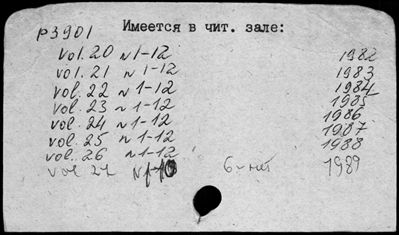 р3901 Имеется в чит. зале:
vol. 20 N 1-12 1982
vol. 21 N 1-12 1983
vol. 22 N 1-12 1984
vol. 23 N 1-12 1985
vol. 24 N 1-12 1986
vol. 25 N 1-12 1987
vol. 26 N 1-12 1988
vol 27 6-нет 1989